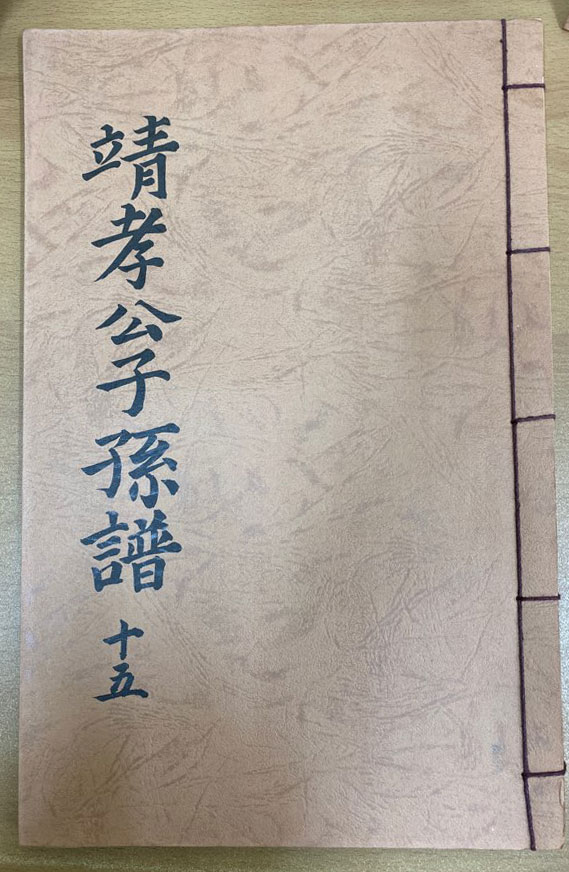 靖孝公子孫譜 十五